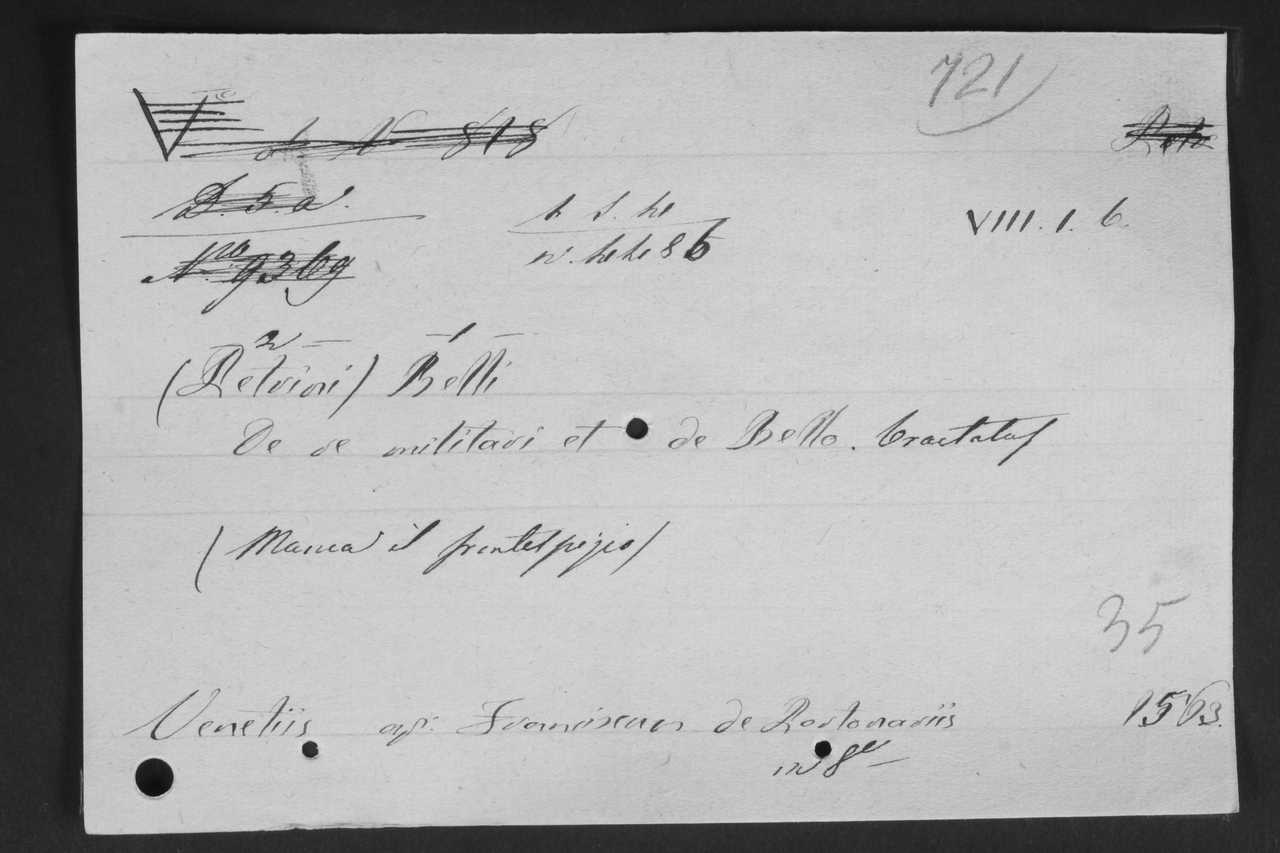 721
N 818
D. 5. a.
VIII. 1. 6.
Nro 9369
2 1
(Petrini) Belli
De re militari et de Bello. Tractatus
(Manca il frontespizio)
35
Venetiis ap. Franciscum de Portonariis 1563.
in 8º